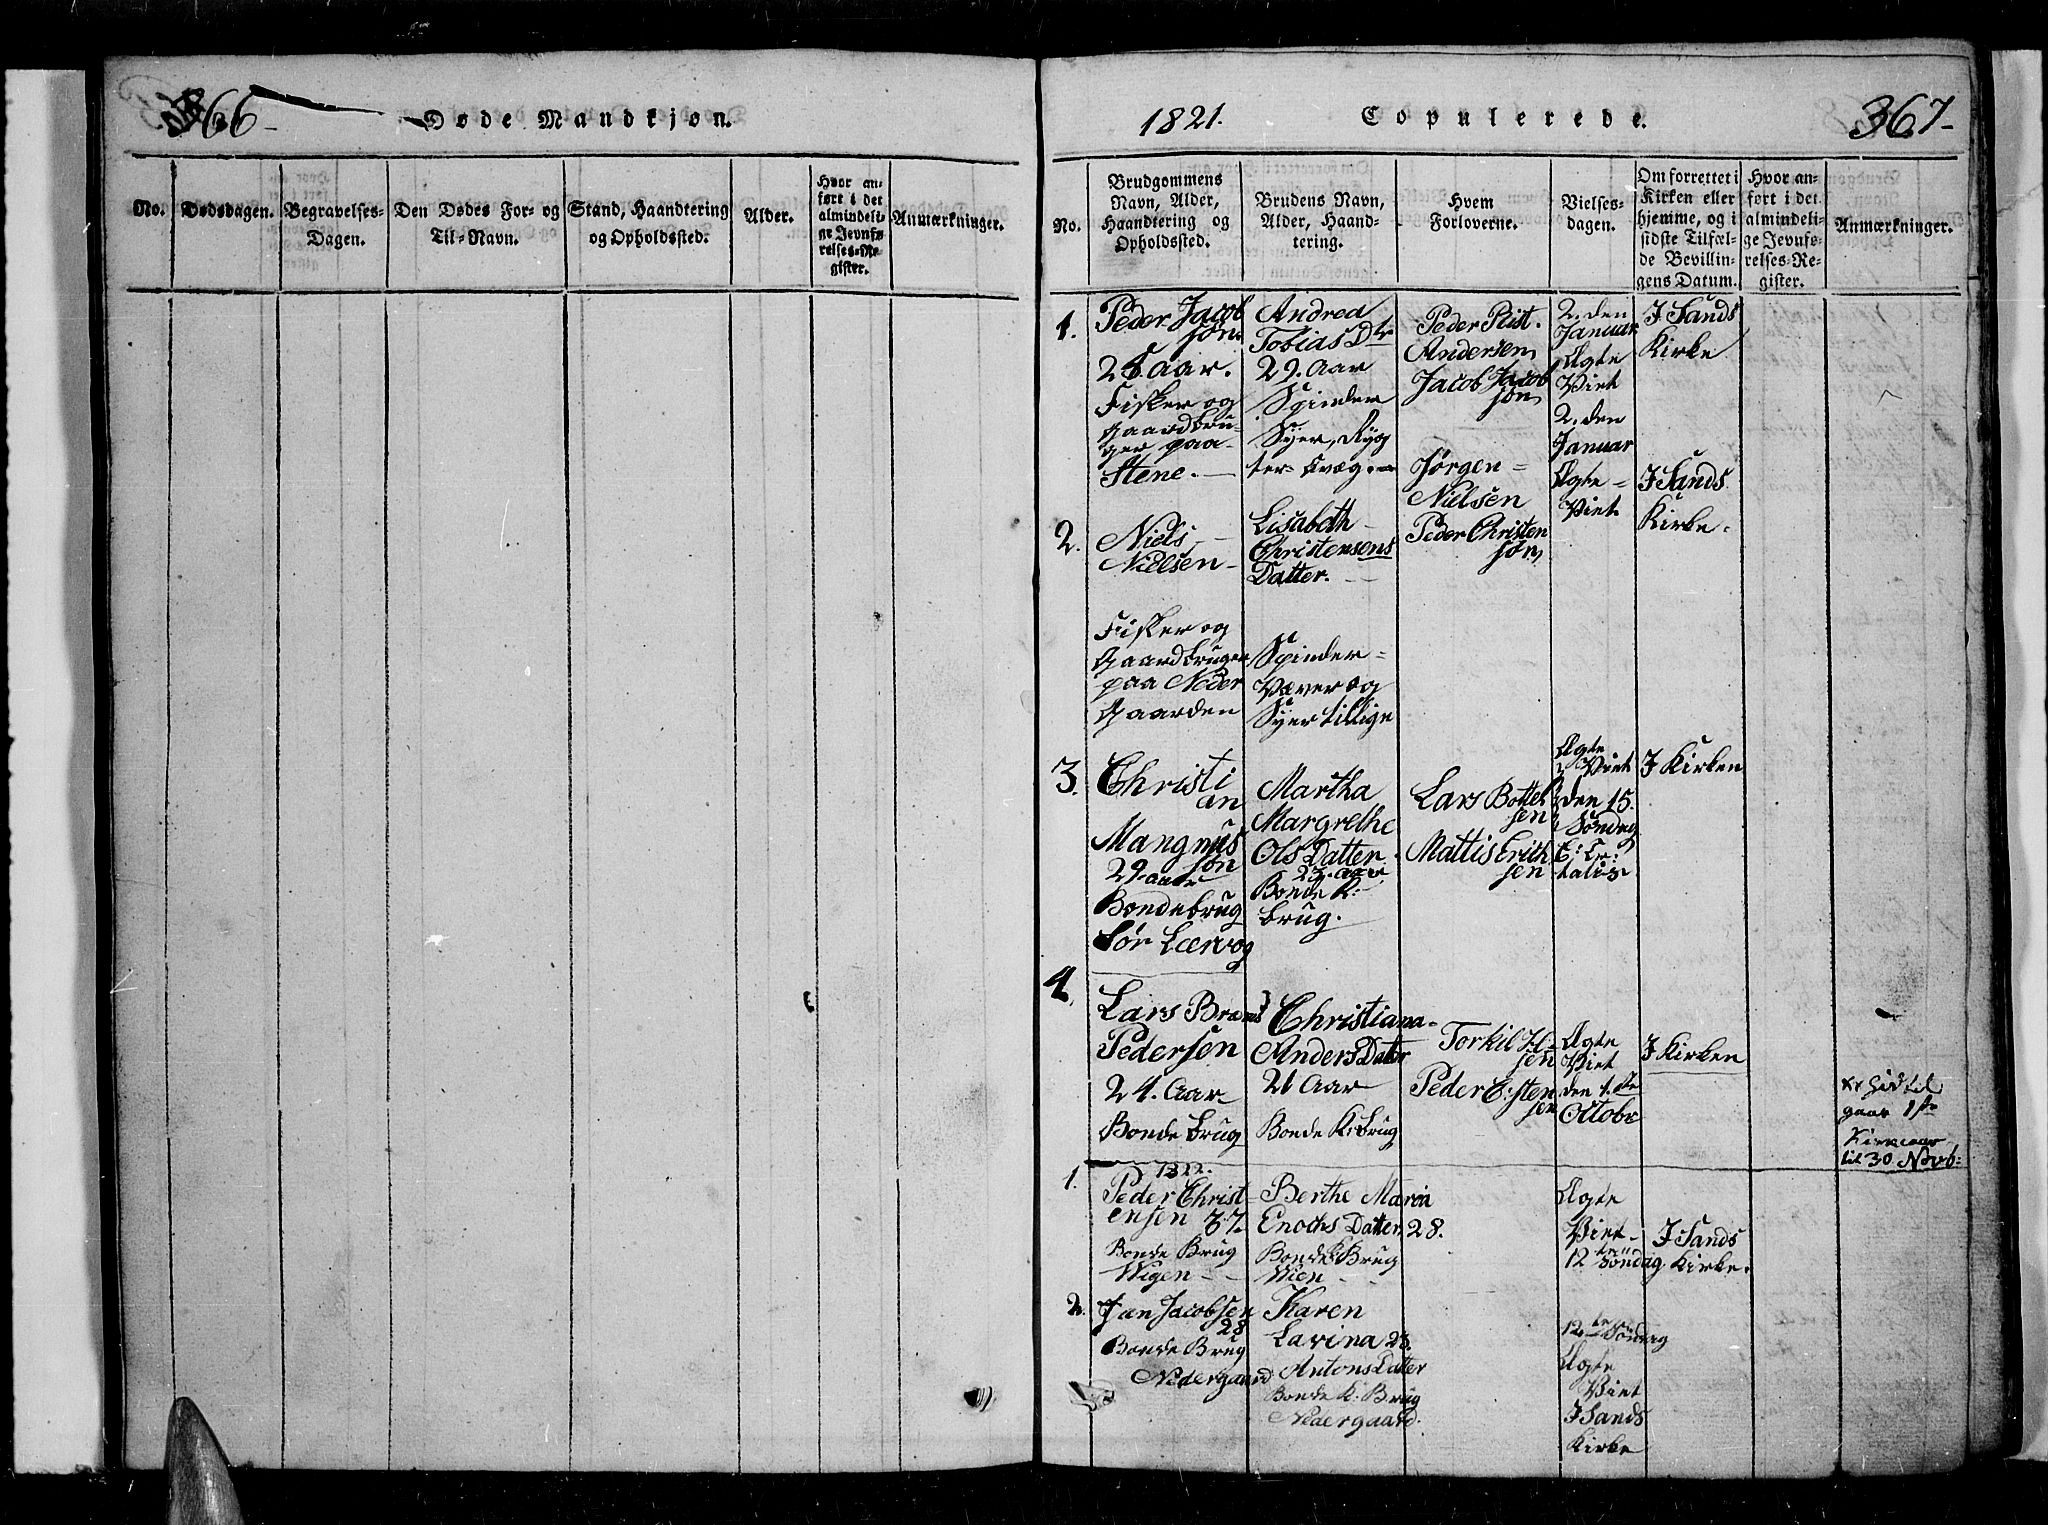 366-
Døde Mandkjøn.
No.
Dødsdagen.
Begravelses-
Dagen.
Den Dødes For- og
Til-Navn.
Stand, Haandtering
og Opholdssted.
Alder.
Hvor an-
ført i det
almindeli-
ge Jevnfø-
relses-Re-
gister.
Anmærkninger.
1821.
Copulerede.
367-
No.
Brudgommens
Navn, Alder,
Haandtering og
Opholdssted.
Brudens Navn,
Alder, Haand-
tering.
Hvem
Forloverne.
Vielses-
dagen.
Om forrettet i
Kirken eller
hjemme, og i
sidste Tilfæl-
de Bevillin-
gens Datum.
Hvor an-
ført i det
almindeli-
ge Jevnfø-
relses-Re-
gister.
Anmærkninger.
1.
Peder Jacob
søn.
28. Aar.
Fisker og
Gaardbru-
ger paa
Stene.
Andrea
Tobias Dtr
29. Aar
Spinder
Syer, Røg
ter Kvæg
Peder Rist.
Andersen
Jacob Jacob
søn
2. den
Januar
Ægte
Viet
I Sands
Kirke
2.
Niels
Nielsen
Fisker og
Gaardbruger
paa Neder
Gaarden
Lisabeth
Christensens
Datter.
Spinder
Væver og
Syer tillige
Jørgen
Nielsen
Peder Christen
søn
2. den
Januar
Ægte
Viet
I Sands
Kirke.
3.
Christi
an
Mangnus
søn
29. aar
Bondebrug
Sør Leervog
Martha
Margrethe
Ols Datter.
23. aar
Bonde K.
brug.
Lars Bottel
sen
Mattis Erich
sen
Ægte
Viet
den 15.
Søndag
E: Tr:
I Kirken
4.
Lars
Pedersen
24. Aar
Bonde brug
Christiana
Anders Datter
21 Aar
Bonde K: brug
Torkil
sen
Peder
sen
Ægte
Viet
den 1.ste
Octobr
I Kirken
hid til
gaar 1ste
Kirkeaar
til 30 Novb:
1822.
1.
Peder Christ
ensen 37.
Bonde Brug
Wigen
Berthe Maria
Enochs Datter 28.
Bonde K Brug
Wien
Ægte
Viet
12te Søndag
I Sands
Kirke.
2.
Jan Jacobsen
28
Bonde Brug
Nedergaard
Karen
Lavina 23.
Antons Datter
Bonde K. Brug
Nedergaard.
12te Søndag
Ægte
Viet
I Sands
Kirke